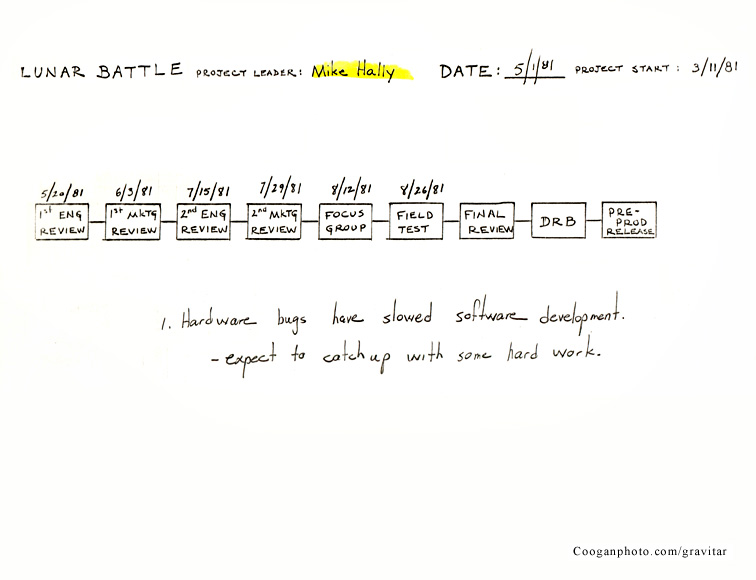 LUNAR BATTLE PROJECT LEADER: Mike Hally DATE: 5/1/81 PROJECT START: 3/11/81
5/20/81 6/3/81 7/15/81 7/29/81 8/12/81 8/26/81
1st ENG REVIEW
1st MKTG REVIEW
2nd ENG REVIEW
2nd MKTG REVIEW
FOCUS GROUP
FIELD TEST
FINAL REVIEW
DRB
PRE-PROD RELEASE
1. Hardware bugs have slowed software development.
- expect to catch up with some hard work.
Cooganphoto.com/gravitar